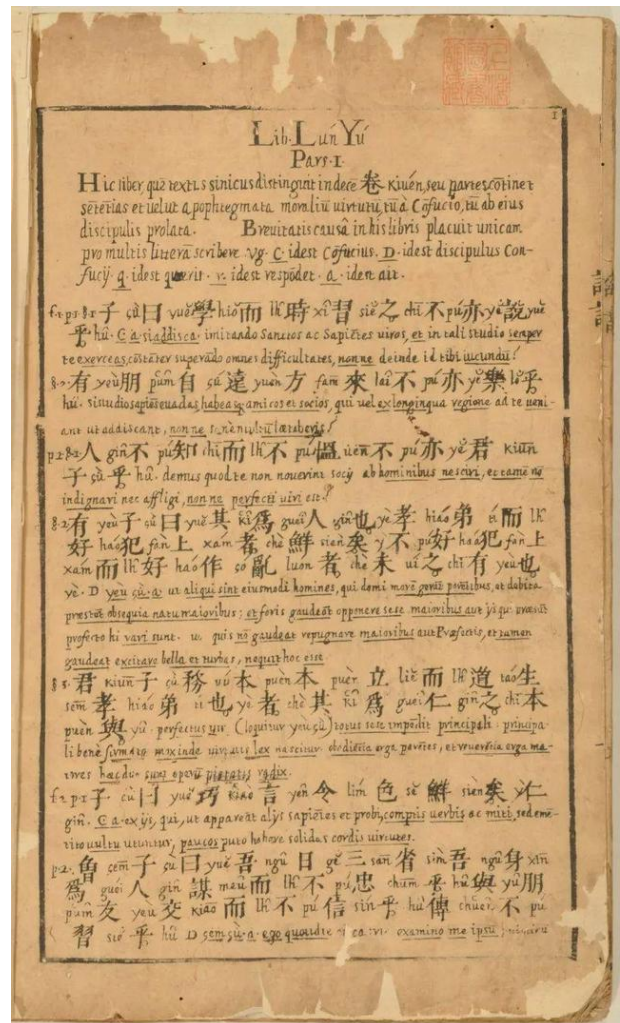 1
Lib. Lún Yú
Pars. I.
Hic liber, quē textus sinicus distinguit in decē 卷 kiuén, seu partes, cōtinet
sētētias et velut apophtegmata moraliū virtutū, tū a Cōfucio, tū ab eius
discipulis prolata. Brevitatis causā in his libris placuit unicam
pro multis litterā scribere Vg. C. idest Cōfucius. D. idest discipulus Con-
fucij. q. idest quærit. r. idest respōdet. a. idest ait.
f.1. p.1. §.1. 子 çù 曰 yuě 學 hiŏ 而 lh̑ 時 xî 習 siĕ 之 chī 不 pŭ 亦 yĕ 說 yuĕ
乎 hû. C. a. si addisca. imitando Sanctos ac Sapiētes viros, et in tali studio semper
te exerceas, cōstāter superādo omnes difficultates, nonne deinde id tibi iucundū?
§.2. 有 yeù 朋 pûm 自 çú 遠 yuèn 方 fām 來 laî 不 pŭ 亦 yĕ 樂 lŏ 乎
hû. si studio sapiēs evadas, habeasq. amicos et socios, qui vel ex longinqua regione ad te veni-
ant ut addiscant, nonne
p.2. §.2. 人 gîn 不 pŭ 知 chī 而 lh̑ 不 pŭ 慍 uén 不 pŭ 亦 yĕ 君 kiūn
子 çù 乎 hû. demus quod te non noverint socij ab hominibus nesciri, et tamē nō
indignari nec affligi, nonne perfecti viri est?
§.2. 有 yeù 子 çù 曰 yuĕ 其 kî 爲 gueî 人 gîn 也 yè 孝 hiáo 弟 tí 而 lh̑
好 haó 犯 fán 上 xám 者 chè 鮮 sièn 矣 y 不 pŭ 好 haó 犯 fán 上
xám 而 lh̑ 好 haó 作 çŏ 亂 luón 者 chè 未 uí 之 chī 有 yeù 也
yè. D yeù çù. a. ut aliqui sint eiusmodi homines, qui domi morē gerāt parētibus, et debita
præstēt obsequia natu maioribus; et foris gaudeāt opponere sese maioribus aut
profecto hi rari sunt. quis nō gaudeat repugnare maioribus aut Præfectis, et tamen
gaudeat excitare bella et turbas, nequit hoc esse
§.3. 君 kiūn 子 çù 務 vú 本 puèn 本 puèn 立 liĕ 而 lh̑ 道 táo 生
sēm 孝 hiáo 弟 tí 也 yè 者 chè 其 kî 爲 gueî 仁 gîn 之 chī 本
puèn 與 yû. perfectus vir (loquitur yeù çù) totus sese impēdit principali. principa-
li bene firmato, mox inde virtutis lex nascitur. obediētia erga parētes, et reverētia erga ma-
iores hæc duo sunt operū pietatis radix.
f.2. p.1. 子 çù 曰 yuĕ 巧 kiào 言 yên 令 lím 色 sĕ 鮮 sièn 矣 y 仁
gîn. C. a. ex ijs, qui, ut appareāt alijs sapiētes et probi, comptis verbis ac miti, sed emē-
tito vultu utuntur, paucos puto habere solidas cordis virtutes.
p.2. 曾 çēm 子 çù 曰 yuĕ 吾 ngû 日 gĕ 三 sān 省 sìm 吾 ngû 身 xīn
爲 guéi 人 gîn 謀 meû 而 lh̑ 不 pŭ 忠 chūm 乎 hû 與 yû 朋
pûm 友 yeù 交 kiāo 而 lh̑ 不 pŭ 信 sín 乎 hû 傳 chuên 不 pŭ
習 siĕ 乎 hû D çēm çù. a. ego quotidie examino me ipsū